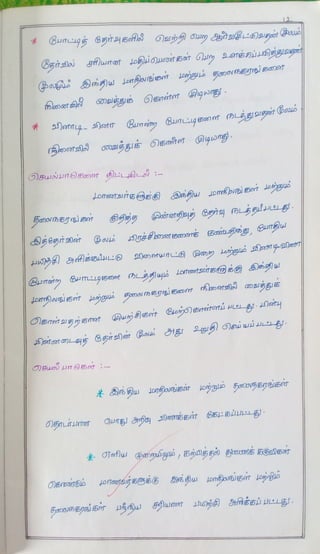 12
* போட்டித் தேர்வுகளில் வெற்றி பெற ஆர்வமூட்டுவதன் மூலம்
தேர்வில் சரியான மதிப்பெண்கள் பெற உளக்கப்படுத்துவதன்
மூலமும் இந்திய மாநிலங்கள் மற்றும் தலைநகரங்களை
நினைவில் வைத்துக் கொள்ள முடியாது.
* வினாடி வினா போன்ற போட்டிகளை நடத்துவதன் மூலம்
நினைவில் வைத்துக் கொள்ள முடியாது.
செயல்பாடுகளை திட்டமிடல் :-
மாணவர்களுக்கு இந்திய மாநிலங்கள் மற்றும்
தலைநகரங்கள் குறித்த முன்னறிவுத் தேர்வு நடத்தப்பட்டது.
இத்தேர்வின் மூலம் பிரச்சினைகளைக் கண்டறிந்து, போதிய
பயிற்சி அளிக்கப்பட்டு விளையாட்டு முறை மற்றும் வினாடி வினா
போன்ற போட்டிகளை நடத்தியும் மாணவர்களுக்கு இந்திய
மாநிலங்கள் மற்றும் தலைநகரங்களை நினைவில் வைத்துக்
கொள்வதற்கான முயற்சிகள் மேற்கொள்ளப்பட்டது. பின்பு
பின்னடைவுத் தேர்வின் மூலம் அது உறுதி செய்யப்பட்டது.
செயல்பாடுகள் :-
* இந்திய மாநிலங்கள் மற்றும் தலைநகரங்கள்
தொடர்பான பொது அறிவு வினாக்கள் கேட்கப்பட்டது.
* எளிய முறையிலும், கற்பித்தல் துணைக் கருவிகள்
கொண்டும் மாணவர்களுக்கு இந்திய மாநிலங்கள் மற்றும்
தலைநகரங்கள் பற்றிய சரியான பயிற்சி அளிக்கப்பட்டது.